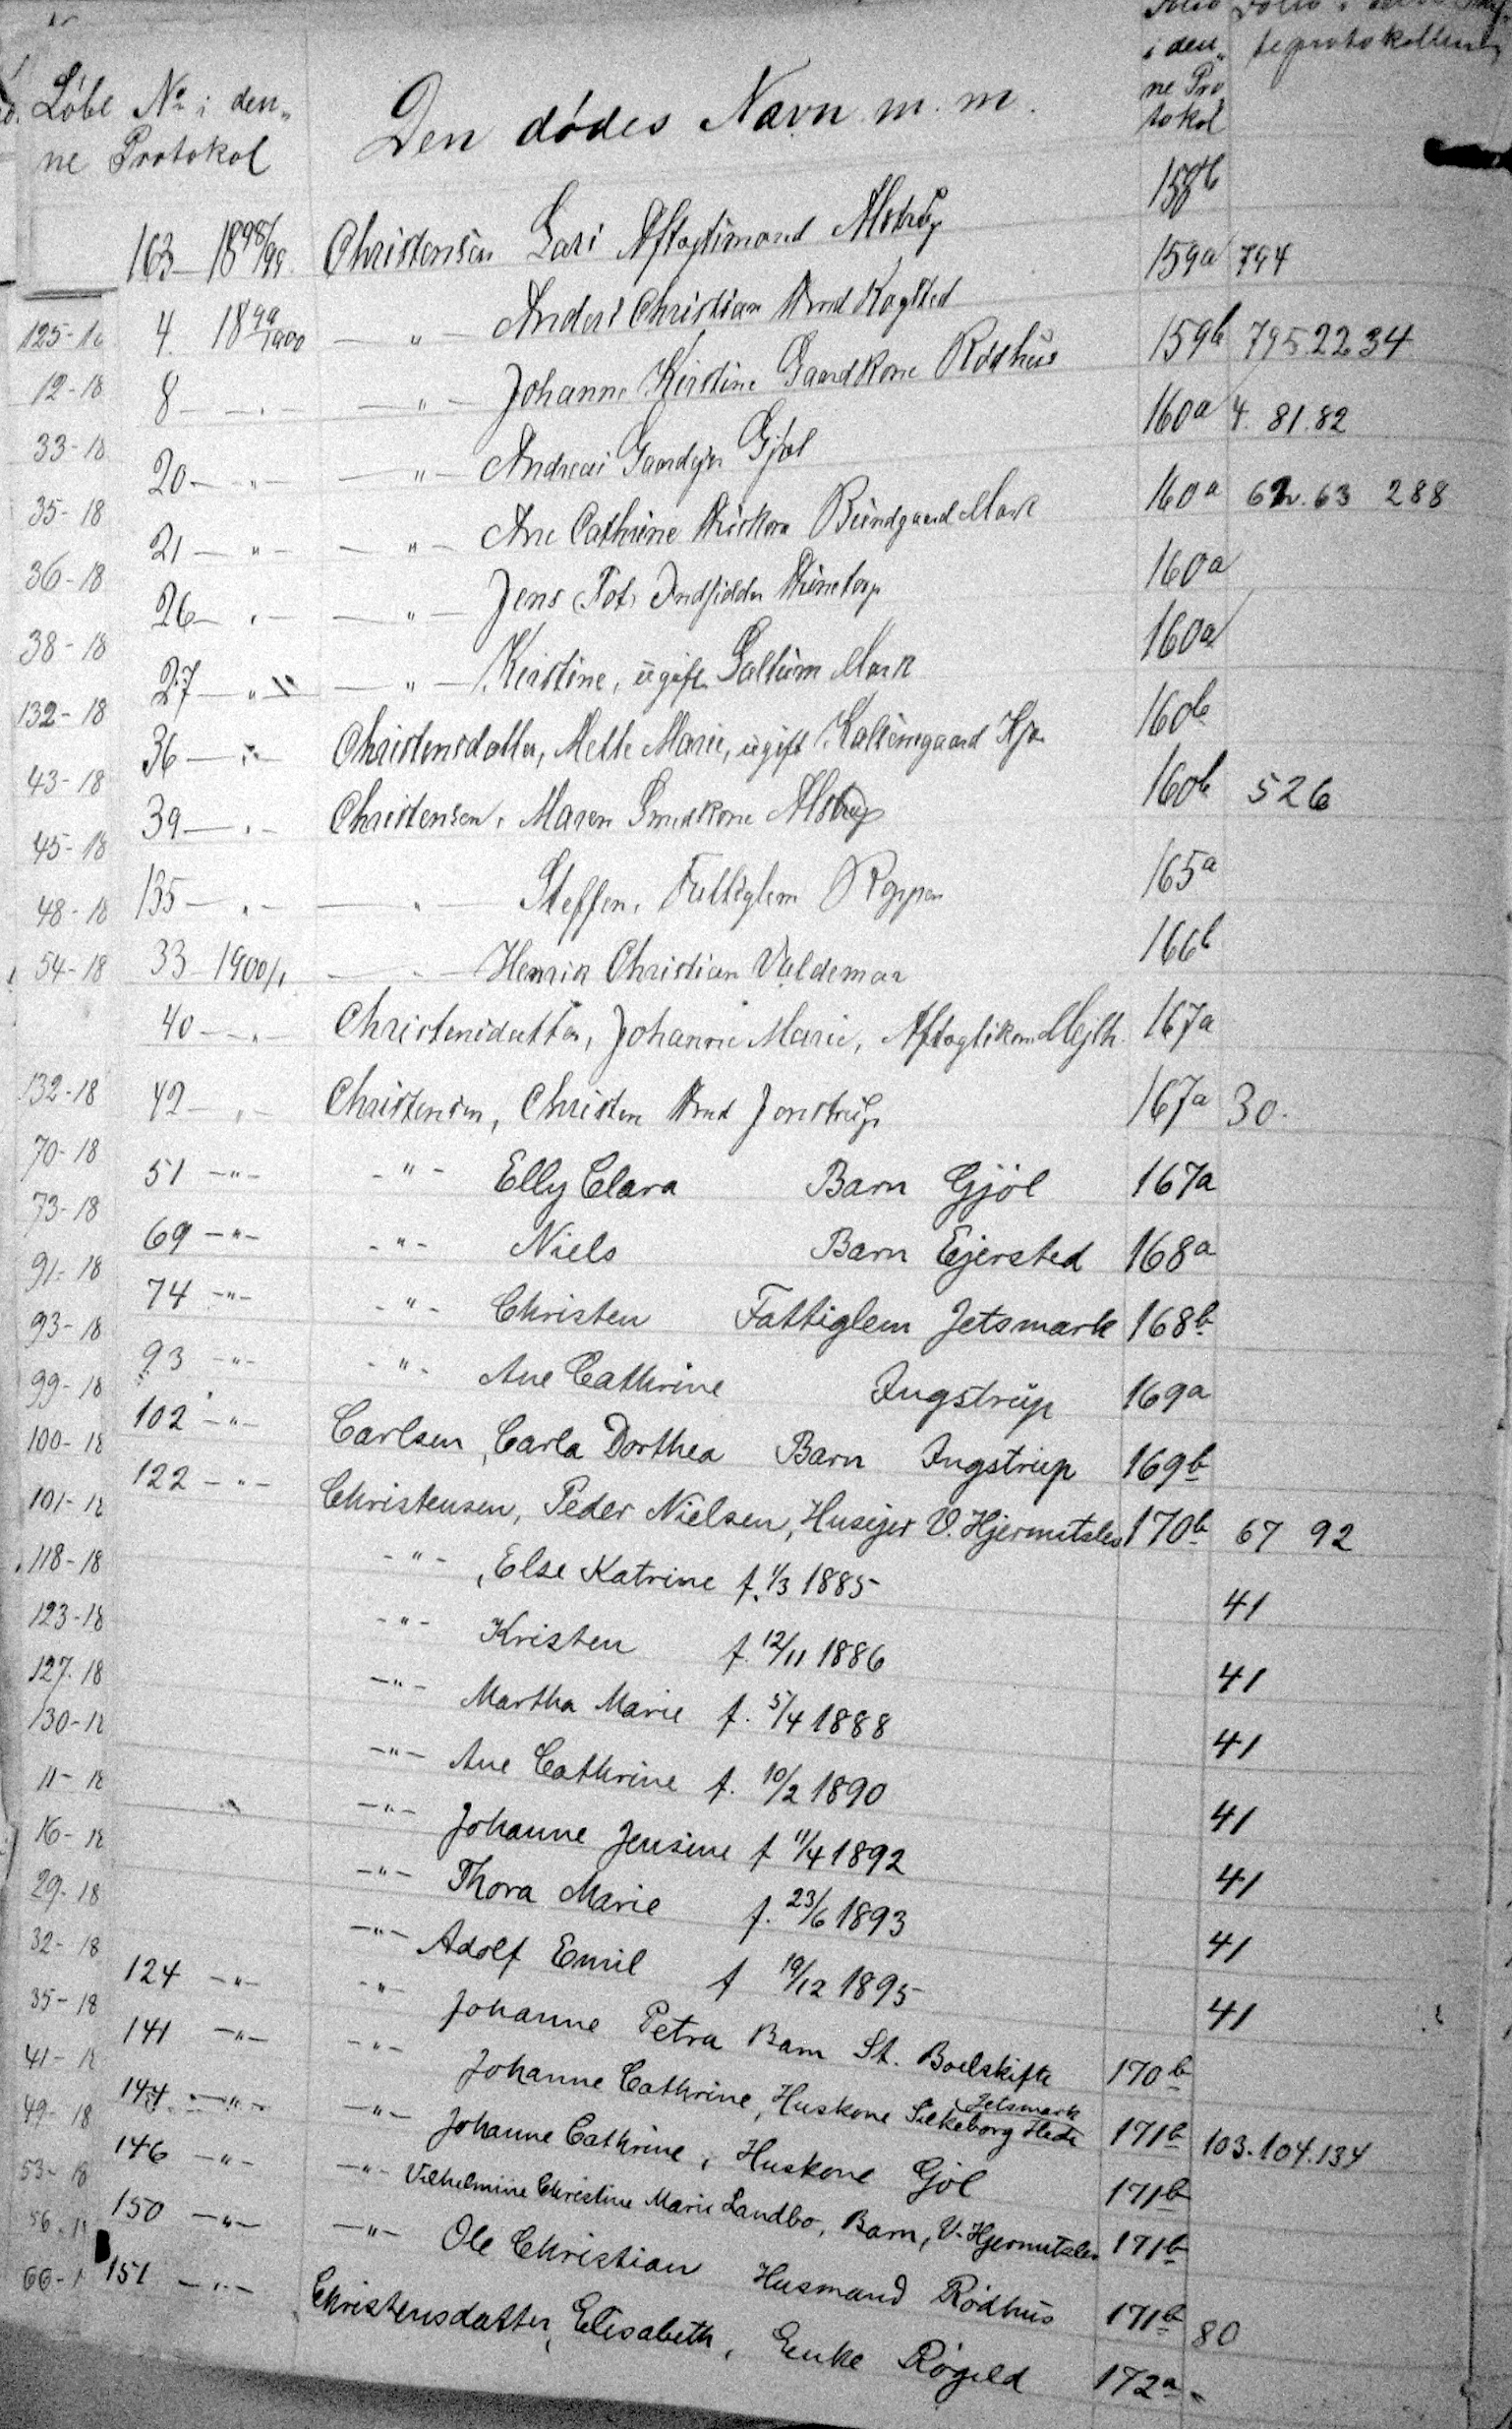 Løbe No i den„
ne Protokol
Den dødes Navn m. m.
i den„
ne Pro
tokol
teprotokollen
163 - 1898/99 Christensen Lars Aftægtsmand Alstrup 158b
4. 1899/1900 — " — Anders Christian Kogsted 159a 794
8 — " — — " — Johanne Kirstine Gaardkone Rødhus 159b 795 22 34
20 — " — — " — Andreas Gaardejer Gjøl 160a 4. 81. 82
21 — " — — " — Ane Cathrine Bundgaard Mark 160a 62. 63 288
26 — " — — " — Jens Indsidder 160a
27 — " — — " — Kirstine, ugift Saltum Mark 160a
36 — " — Christensdatter, Mette Marie, ugift 160b
39 — " — Christensen, Maren Smedkone Alstrup 160b 526
135 — " — — " — Steffen, Fattiglem 165a
33 1900/1 — " — Henrik Christian Valdemar 166b
40 — " — Christensdatter, Johanne Marie, Aftægtskone 167a
42 — " — Christensen, Christen Jonstrup 167a 30.
51 — " — — " — Elly Clara Barn Gjöl 167a
69 — " — — " — Niels Barn Ejersted 168a
74 — " — — " — Christen Fattiglem Jetsmark 168b
93 — " — — " — Ane Cathrine Ingstrup 169a
102 — " — Carlsen, Carla Dorthea Barn Ingstrup 169b
122 — " — Christensen, Peder Nielsen, Husejer V. Hjermitslev 170b 67 92
— " — , Else Katrine f. 1/3 1885 41
— " — Kristen f. 12/11 1886 41
— " — Martha Marie f. 5/4 1888 41
— " — Ane Cathrine f. 10/2 1890 41
— " — Johanne Jensine f 11/4 1892 41
— " — Thora Marie f. 23/6 1893 41
— " — Adolf Emil f 19/12 1895 41
124 — " — — " — Johanne Petra Barn St. Boelskifte 170b
141 — " — — " — Johanne Cathrine, Huskone Silkeborg Hede Jetsmark 171b 103. 104. 134
144 — " — — " — Johanne Cathrine, Huskone Gjöl 171b
146 — " — — " — Vilhelmine Christine Marie Landbo, Barn, V. Hjermitslev 171b
150 — " — — " — Ole Christian Husmand Rödhus 171b 80
151 — " — Christensdatter, Elisabeth, Enke Rögild 172a
125-18
12-18
33-18
35-18
36-18
38-18
132-18
43-18
45-18
48-18
54-18
132-18
70-18
73-18
91-18
93-18
99-18
100-18
101-18
118-18
123-18
127-18
130-18
11-18
16-18
29-18
32-18
35-18
41-18
49-18
53-18
56-18
66-1